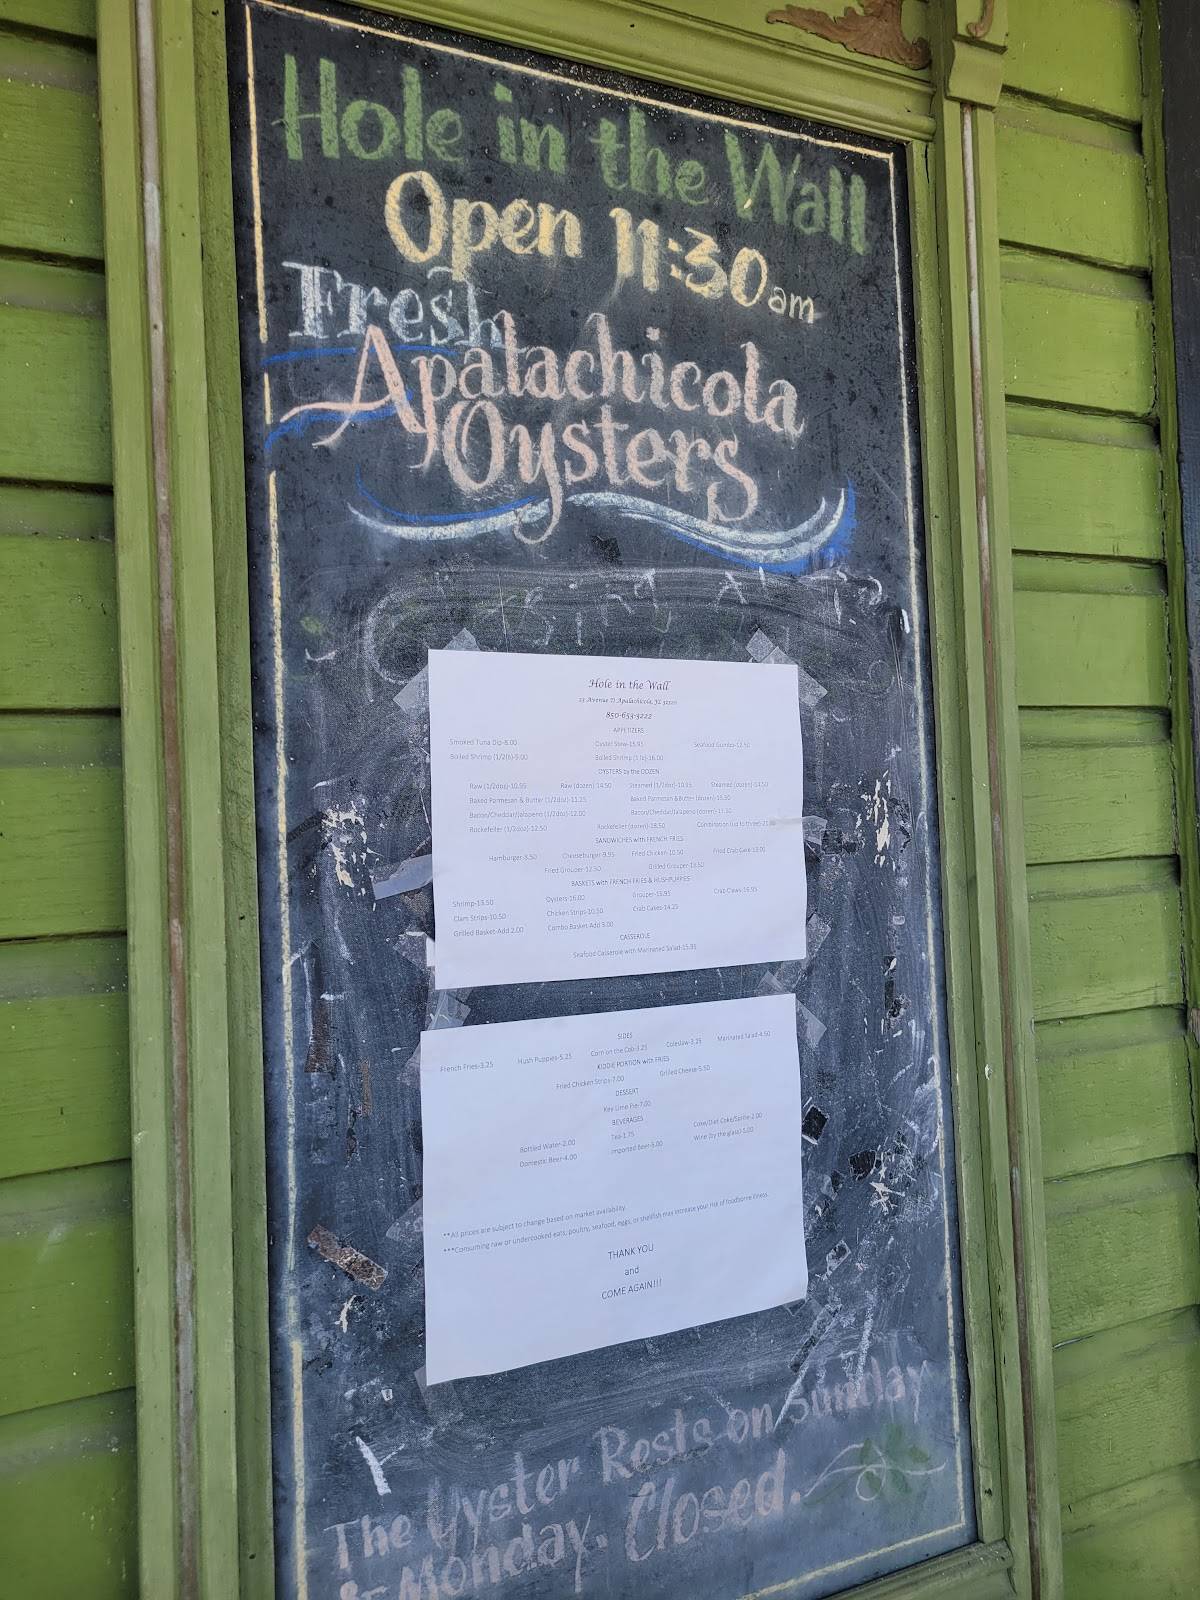 Hole in the Wall
Open 11:30 am
Fresh
Apalachicola
Oysters
Hole in the Wall
23 Avenue D Apalachicola, FL 32320
850-653-3222
APPETIZERS
Smoked Tuna Dip-8.00 Oyster Stew-15.95 Seafood Gumbo-12.50
Boiled Shrimp (1/2lb)-9.00 Boiled Shrimp (1 lb)-16.00
OYSTERS by the DOZEN
Raw (1/2doz)-10.95 Raw (dozen) 14.50 Steamed (1/2doz)-10.95 Steamed (dozen)-14.50
Baked Parmesan & Butter (1/2doz)-11.25 Baked Parmesan &Butter (dozen)-15.50
Bacon/Cheddar/Jalapeno (1/2doz)-12.00 Bacon/Cheddar/Jalapeno (dozen)-17.50
Rockefeller (1/2doz)-12.50 Rockefeller (dozen)-18.50 Combination (up to three)
SANDWICHES with FRENCH FRIES
Hamburger-8.50 Cheeseburger-9.95 Fried Chicken-10.50 Fried Crab Cake-13.00
Fried Grouper-12.50 Grilled Grouper-13.50
BASKETS with FRENCH FRIES & HUSHPUPPIES
Shrimp-13.50 Oysters-16.00 Grouper-15.95 Crab Claws-16.95
Clam Strips-10.50 Chicken Strips-10.50 Crab Cakes-14.25
Grilled Basket-Add 2.00 Combo Basket-Add 3.00
CASSEROLE
Seafood Casserole with Marinated Salad-15.95
SIDES
French Fries-3.25 Hush Puppies-5.25 Corn on the Cob-3.25 Coleslaw-3.25 Marinated Salad-4.50
KIDDIE PORTION with FRIES
Fried Chicken Strips-7.00 Grilled Cheese-5.50
DESSERT
Key Lime Pie-7.00
BEVERAGES
Bottled Water-2.00 Tea-1.75 Coke/Diet Coke/Sprite-2.00
Domestic Beer-4.00 Imported Beer-5.00 Wine (by the glass)-5.00
**All prices are subject to change based on market availability.
***Consuming raw or undercooked eats, poultry, seafood, eggs, or shellfish may increase your risk of foodborne illness.
THANK YOU
and
COME AGAIN!!!
The Oyster Rests on Sunday
& Monday. Closed.